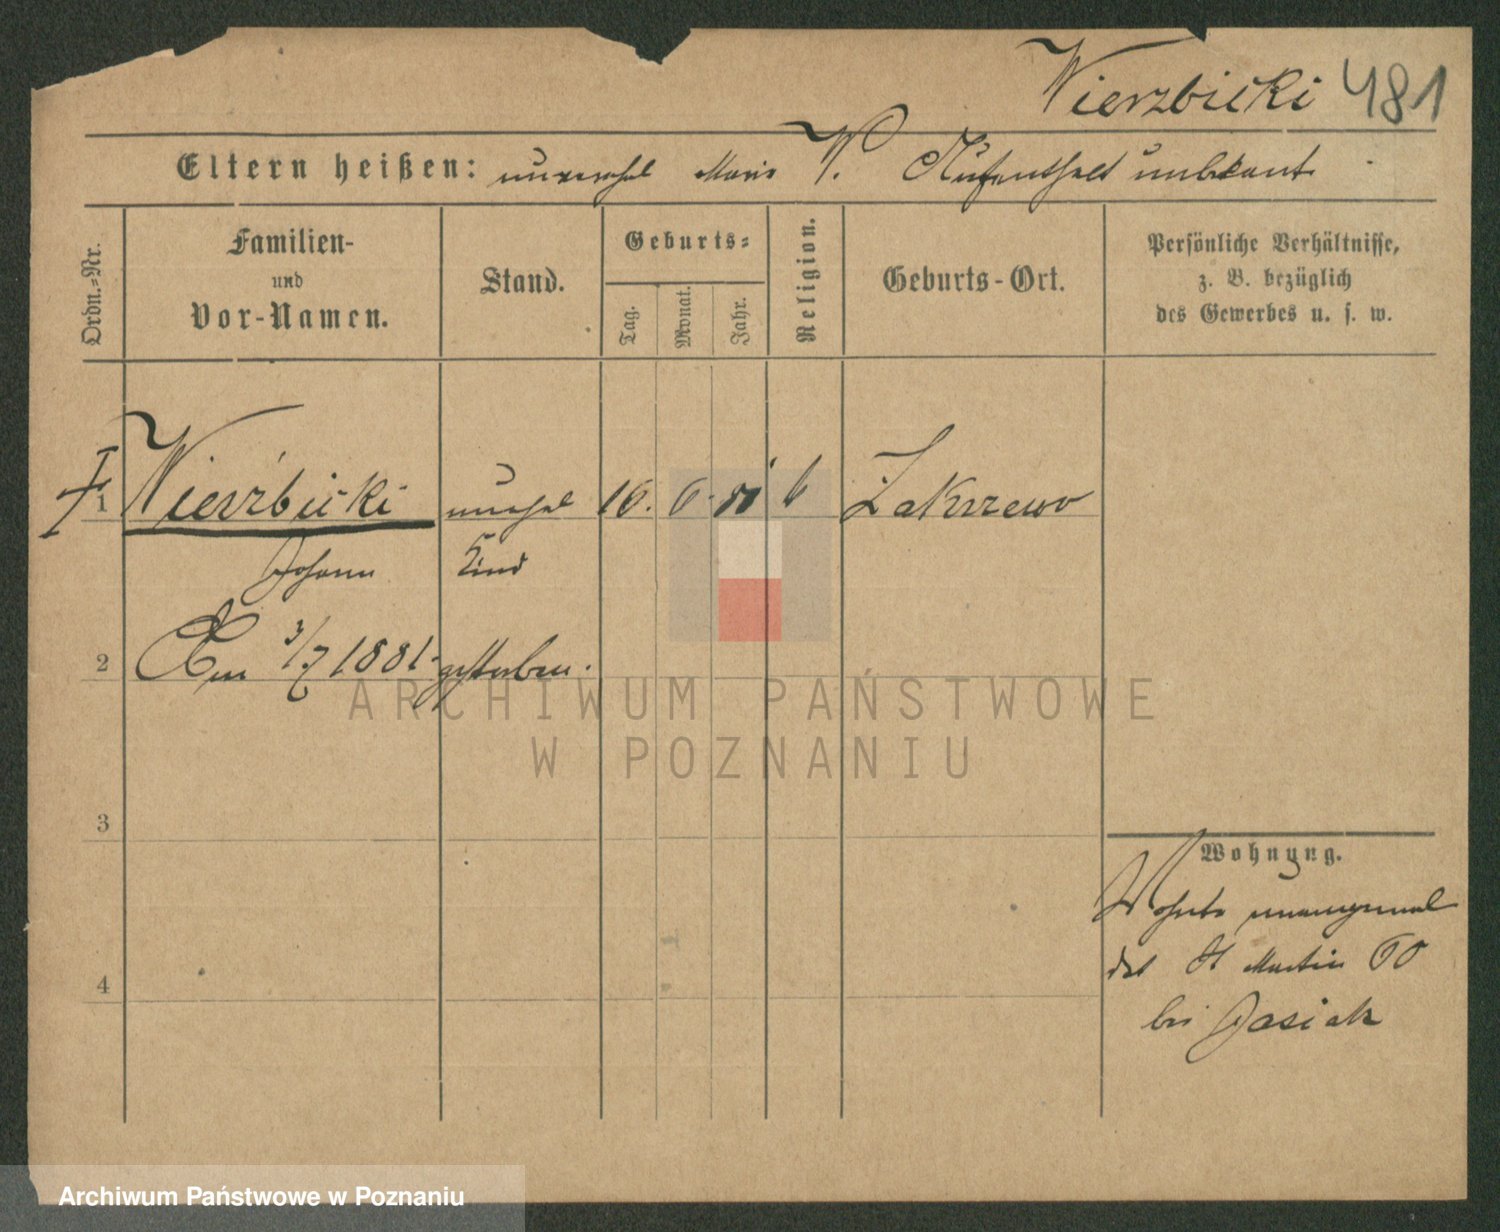 Wierzbicki 481
Eltern heißen: unverehel Marie W. Aufenthalt unbekant
Ordn.-Nr.
Familien-
und
Vor-Namen.
Stand.
Geburts-
Tag.
Monat.
Jahr.
Religion.
Geburts-Ort.
Persönliche Verhältnisse,
z. B. bezüglich
des Gewerbes u. s. w.
1 Wierzbicki unehel 16. 6. k Zakrzewo
Johann Kind
2 Am 3/7 1881 gestorben.
3
4
Wohnung.
Wohnte unangemel
det St Martin 60
bei Jasiak
ARCHIWUM PAŃSTWOWE
W POZNANIU
Archiwum Państwowe w Poznaniu